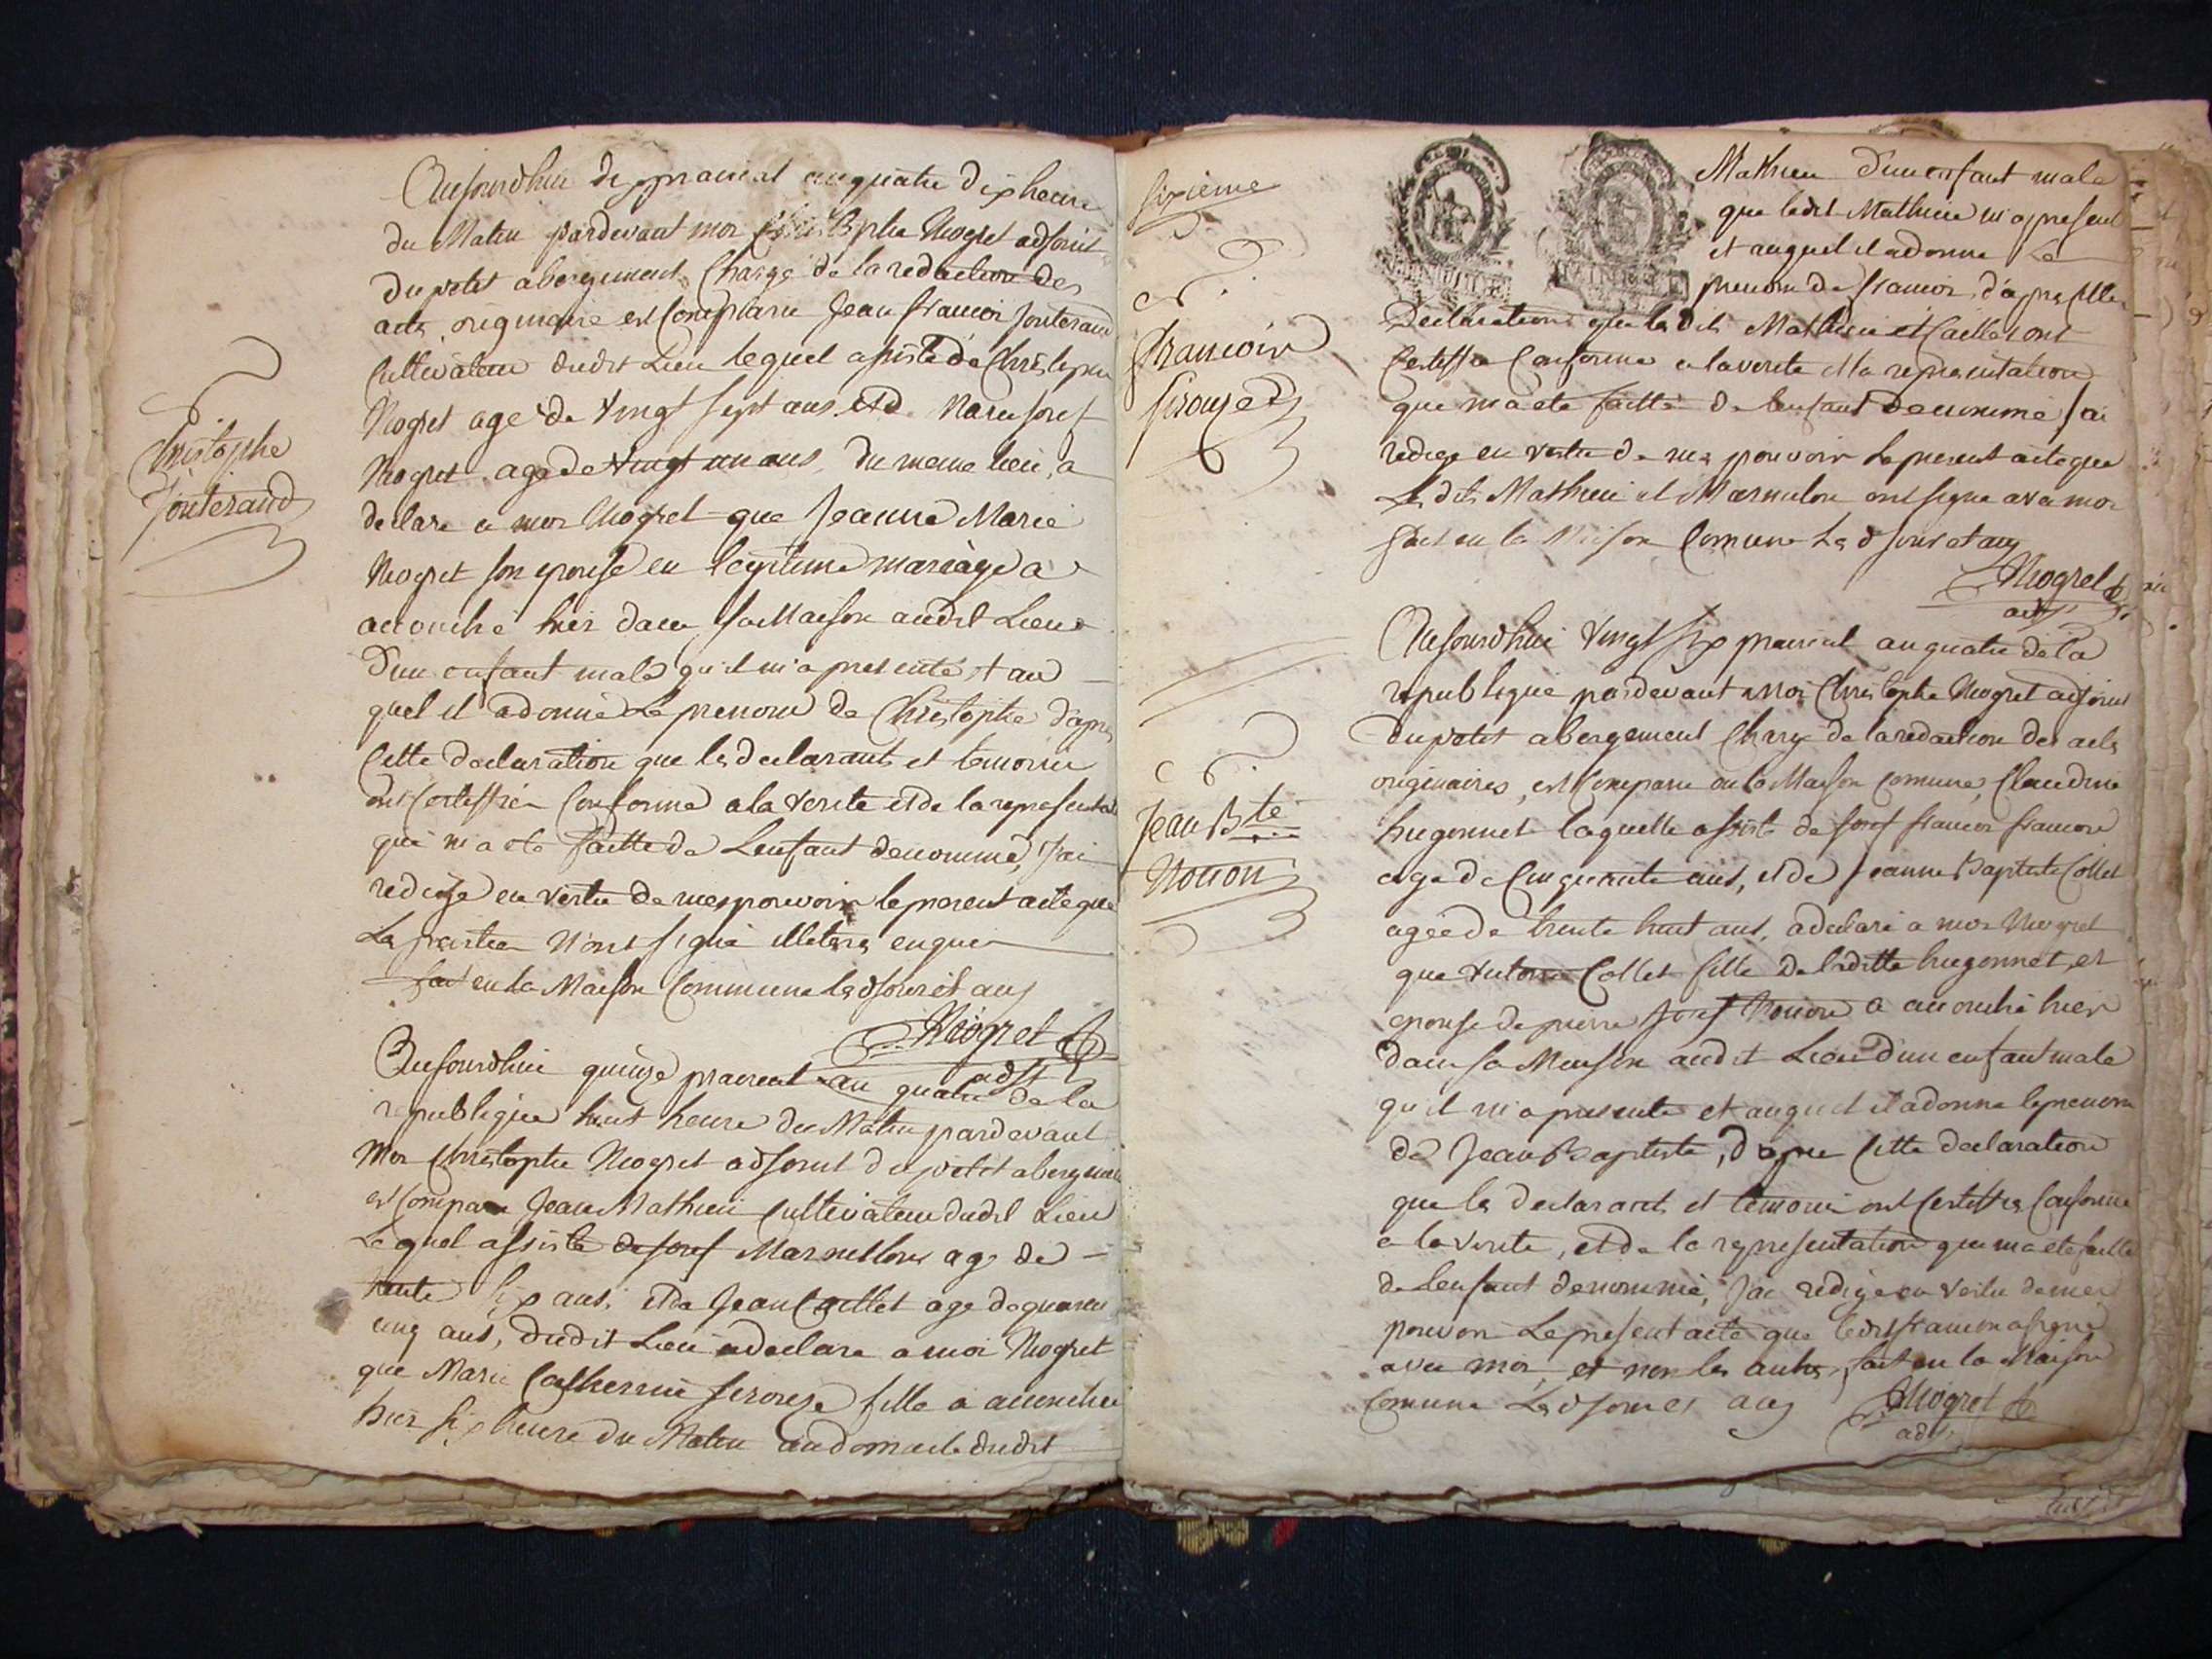 Christophe
Jouterand
Aujourdhui dix prairial an quatre dix heure
du Matin pardevant moi Christophe Mogret adjoint
du petit abergement Chargé de la redaction des
acts originaire est Comparu Jean francois Jouterand
Cultivateur dudit Lieu lequel assisté de Christophe
Mogret agé de vingt sept ans et de Marie Josef
Mogret agé de vingt un ans du meme lieu, a
declare a moi Mogret que Jeanne Marie
Mogret son epouse en legitime mariage a
accouché hier dans sa Maison audit Lieu
d'un enfant male qu'il m'a presenté et au
quel il a donné Le prenom de Christophe d'apres
Cette declaration que les declarants et temoins
ont Certiffiée Conforme a la verite et de la representa
qui m'a ete faitte de Lenfant denommé, J'ai
redigé en vertu de mes pouvoirs le present acte que
Les parties n'ont signé illeteres enquis
fait en la Maison Commune Les d jour et an
Mogret
adjt
Aujourdhui quinze prairial an quatre de la
republique huit heure du Matin pardevant
Moi Christophe Mogret adjoint du petit abergement
est Comparu Jean Mathieu Cultivateur dudit Lieu
Lequel assisté de Josef Marmillon agé de
trente six ans, et de Jean Caillet age de quarante
cinq ans, dudit Lieu a declare a moi Mogret
que Marie Catherine fille a accouchée
hier six heure du Matin au domicile dudit
Sixieme
francois
Jean Bte
Nouon
Mathieu d'un enfant male
que ledit Mathieu m'a presenté
et auquel il a donne Le
prenom de francois, d'apres Cette
Declaration que les dits Mathieu et Caillet ont
Certiffié Conforme a la verite et la representation
que m'a ete faitte de lenfant denommé J'ai
redige en vertu de mes pouvoir Le present acte que
Les dits Mathieu et Marmillon ont signe avec moi
fait en la Maison Comune Les d jour et an
Mogret
adjt
Aujourdhui vingt six prairial an quatre de la
republique pardevant moi Christophe Mogret adjoint
du petit abergement Charge de la redaction des acts
originaires, est Comparu en la Maison Comune, Claudine
hugonnet laquelle assisté de Josef francois francon
age de Cinquante ans, et de Jeanne Baptiste Collet
agée de trente huit ans, a declaré a moi Mogret
que Collet fille de laditte hugonnet, et
epouse de pierre Josef Nouon a accouché hier
dans sa Maison audit Lieu d'un enfant male
qu'il m'a presenté et auquel il a donne le prenom
de Jean Baptiste, d'apres Cette declaration
que les declarants et temoins ont Certiffiés Conforme
a la verite, et de la representation que m'a ete faitte
de lenfant denommé, J'ai redige en vertu de mes
pouvoir Le present acte que ledit francon a signé
avec moi, et non les autres, fait en la Maison
Comune Les d jour et an
Mogret
adjt